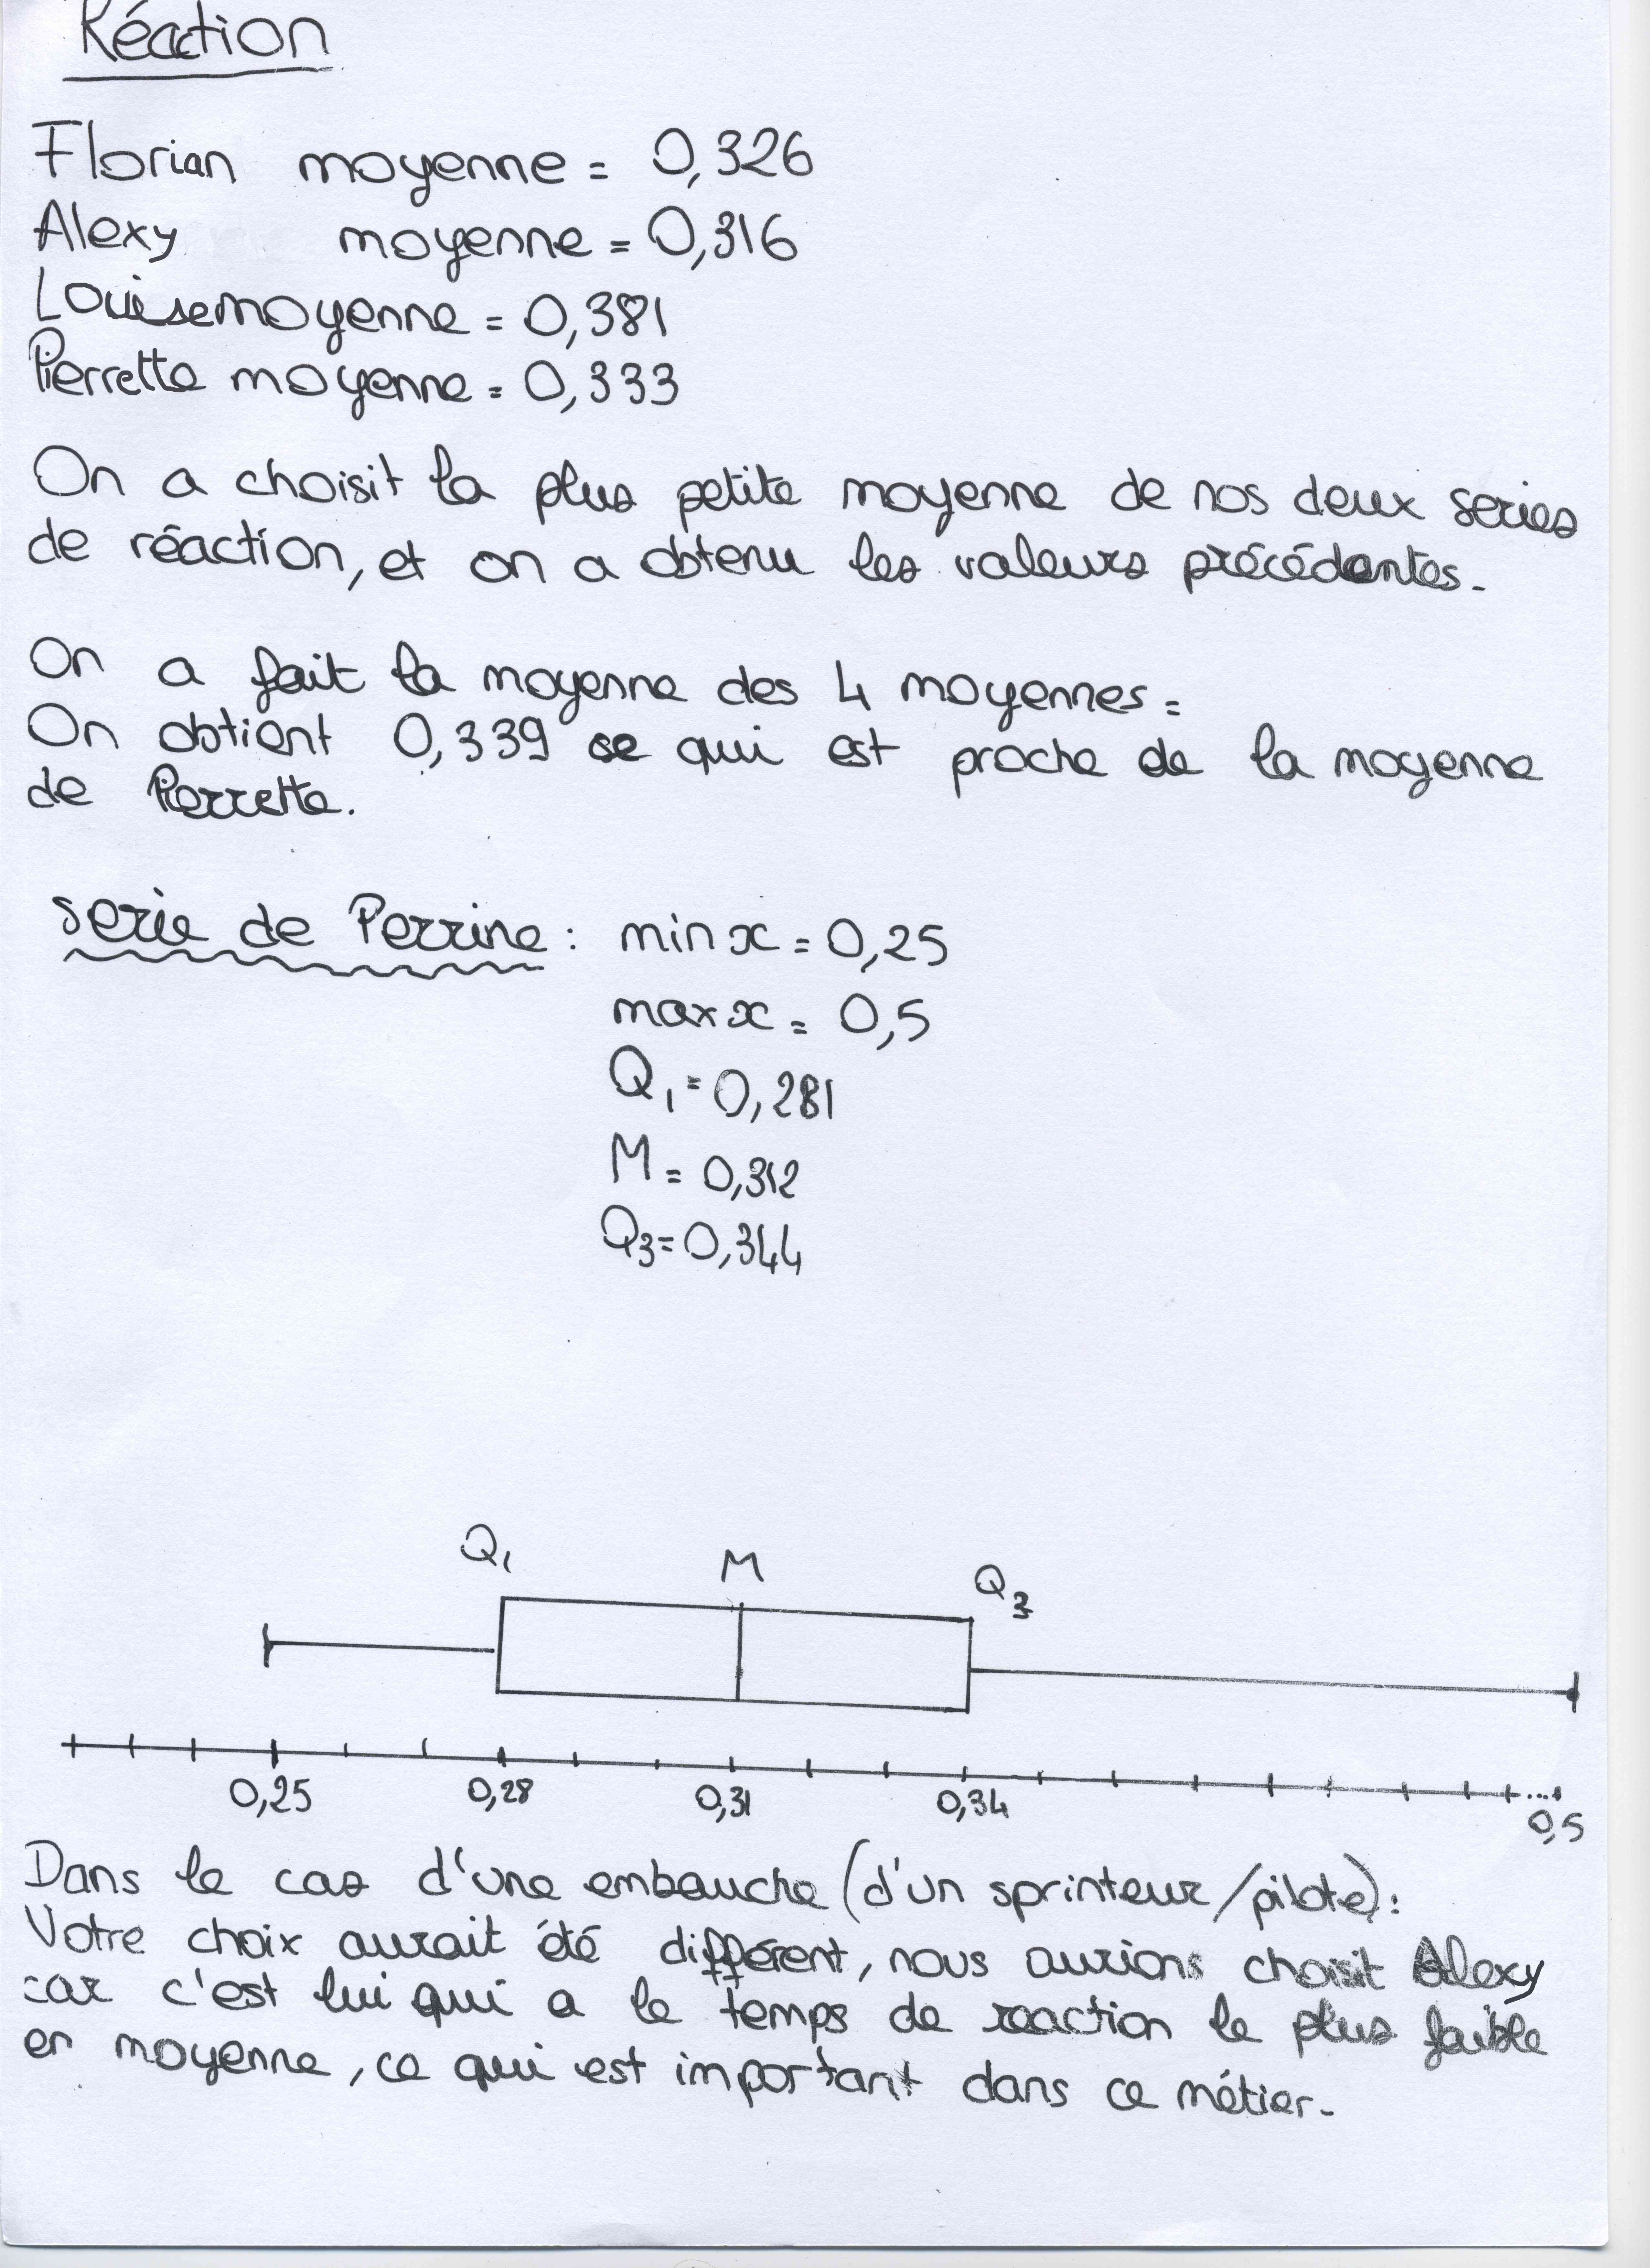 Réaction
Florian moyenne = 0,326
Alexy moyenne = 0,316
Louise moyenne = 0,381
Pierrette moyenne = 0,333
On a choisit la plus petite moyenne de nos deux series
de réaction, et on a obtenu les valeurs précédentes.
On a fait la moyenne des 4 moyennes =
On obtient 0,339 se qui est proche de la moyenne
de Pierrette.
serie de Perrine : min x = 0,25
max x = 0,5
Q1 = 0,281
M = 0,312
Q3 = 0,344
Q1 M Q3
0,25 0,28 0,31 0,34 ... 0,5
Dans le cas d'une embauche (d'un sprinteur/pilote) :
Votre choix aurait été différent, nous aurions choisit Alexy
car c'est lui qui a le temps de reaction le plus faible
en moyenne, ce qui est important dans ce métier.